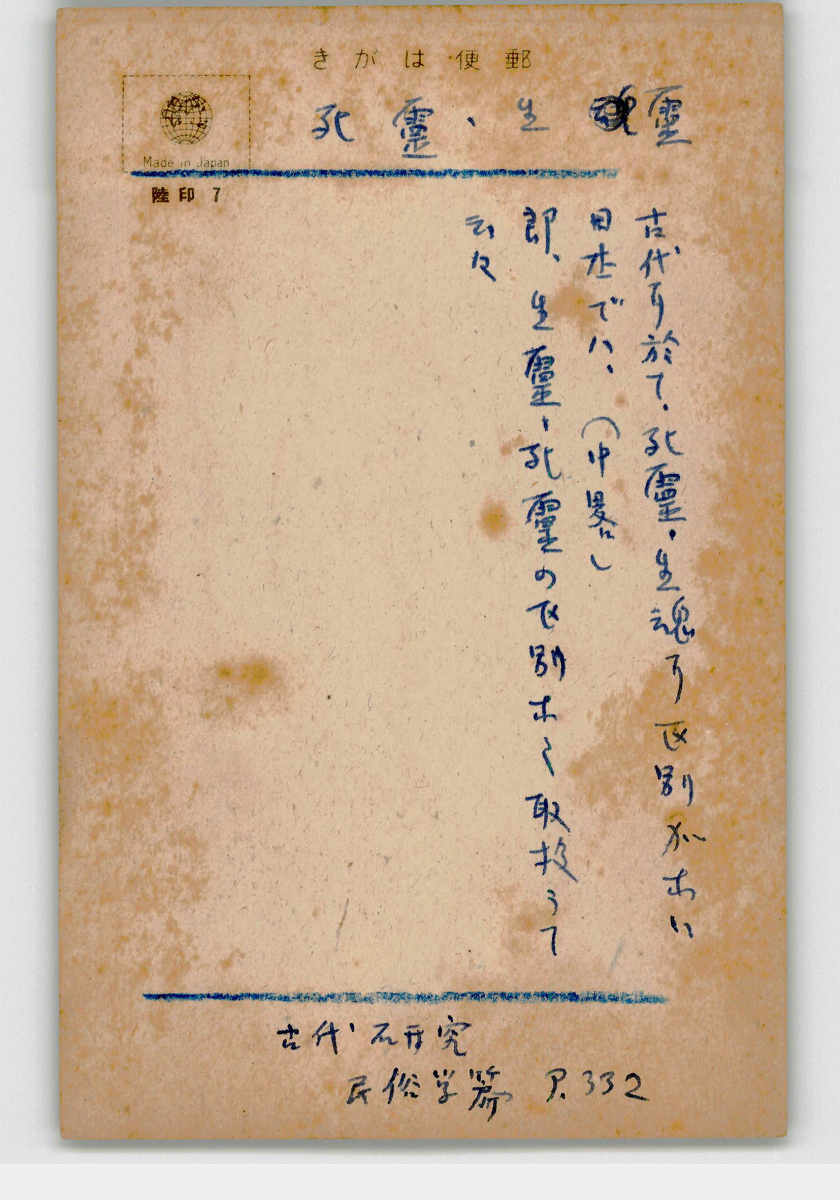 郵便はがき
Made in Japan
陸印 7
死靈、生靈
古代に於て、死靈・生魂に区別がない
日本でハ、(中畧)
即、生靈、死靈の区別なく取扱うて
云々
古代研究
民俗学篇 P.332